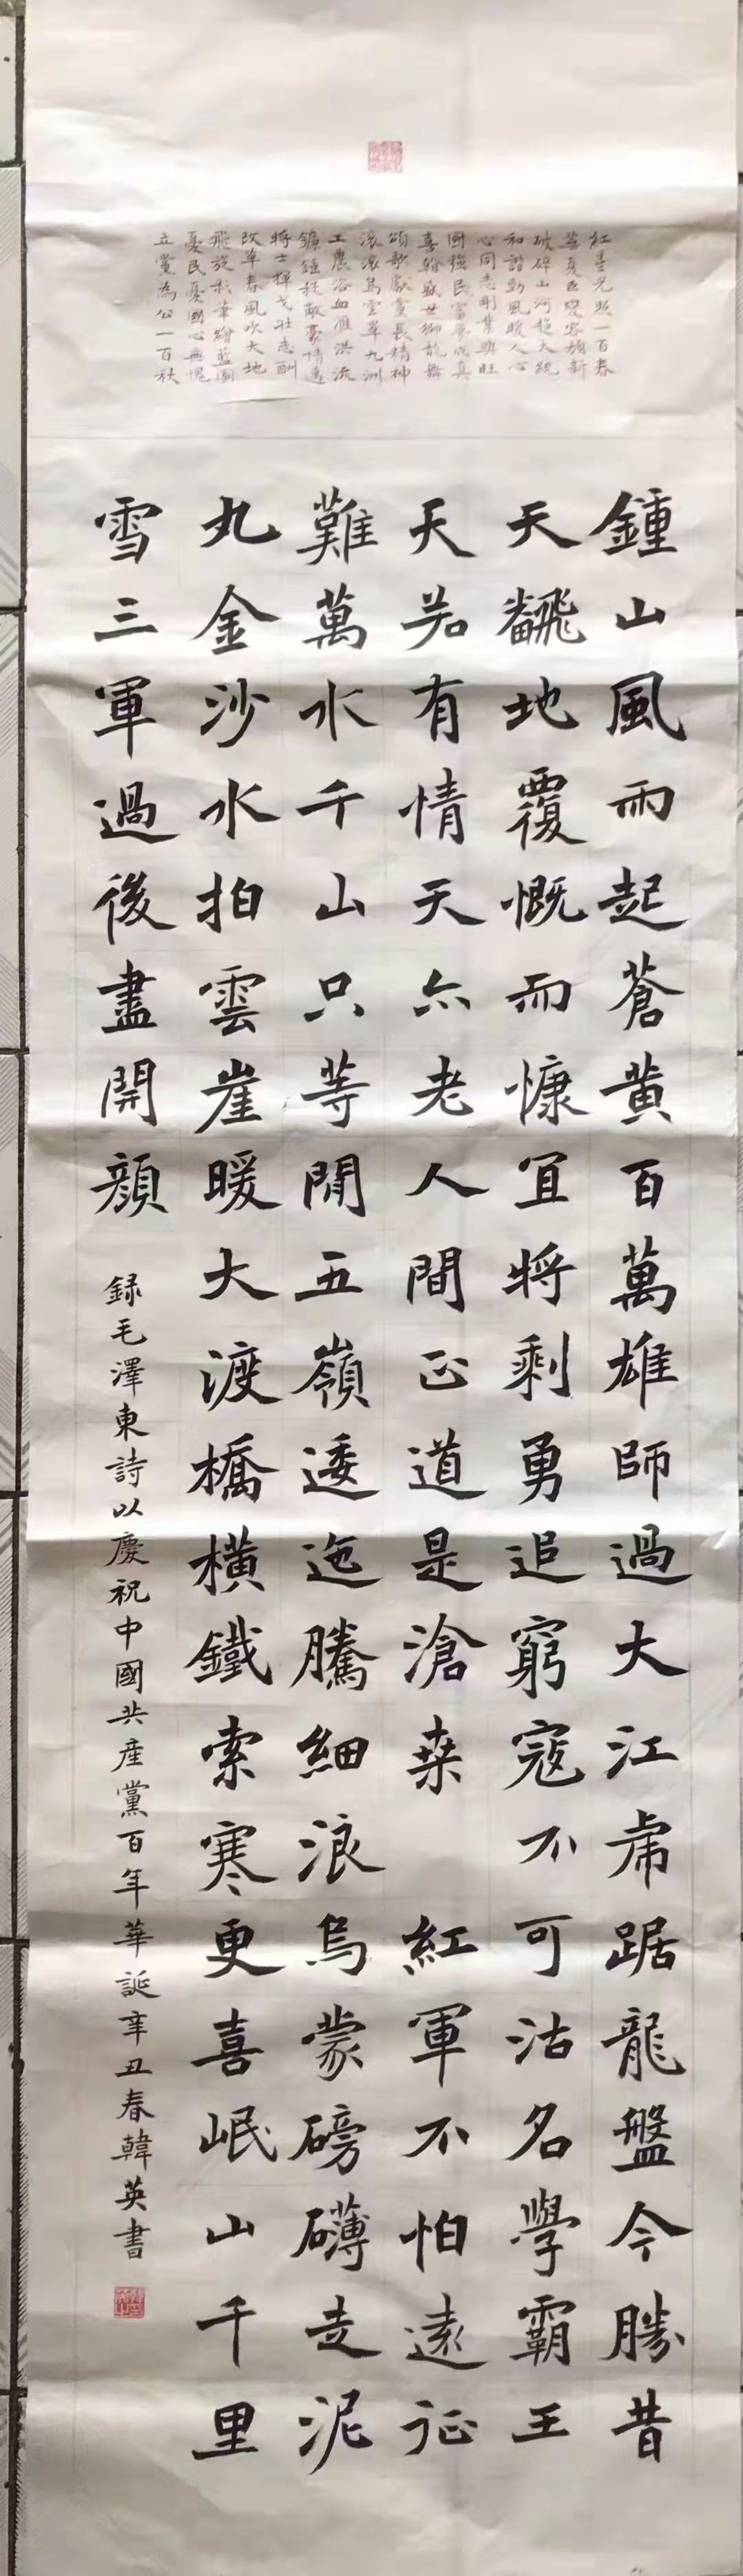 紅星光照一百春
華夏巨變容新
破碎山河趨大統
和諧風暖人心
心同志剛業興旺
國強民富夢成真
喜盛世獅龍舞
頌歌獻黨長精神
滾滾烏雲罩九洲
工農浴血洪流
鐮錘殺敵豪情邁
將士揮戈壯志酬
改革春風吹大地
飛旋彩筆繪藍圖
憂民憂國心無愧
立黨為公一百秋
鍾山風雨起蒼黃百萬雄師過大江虎踞龍盤今勝昔
天飜地覆慨而慷宜將剩勇追窮寇不可沽名學霸王
天若有情天亦老人間正道是滄桑 紅軍不怕遠征
難萬水千山只等閒五嶺逶迤騰細浪烏蒙磅礴走泥
丸金沙水拍雲崖暖大渡橋橫鐵索寒更喜岷山千里
雪三軍過後盡開顏
録毛澤東詩以慶祝中國共產黨百年華誕辛丑春韓英書